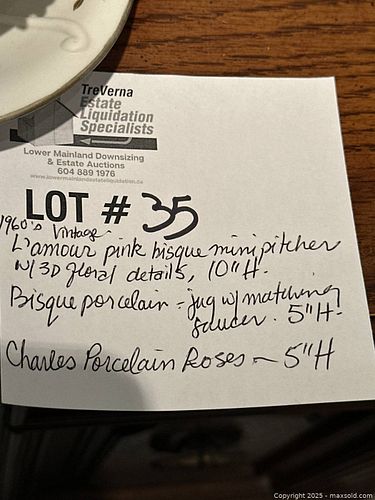 TreVerna
Estate
Liquidation
Specialists
Lower Mainland Downsizing
& Estate Auctions
604 889 1976
www.lowermainlandestateliquidation.ca
LOT # 35
1960's Vintage
L'amour pink bisque mini pitcher
w/ 3D floral details, 10"H.
Bisque porcelain - jug w/ matching
saucer. 5"H-
Charles Porcelain Roses ~ 5"H
Copyright 2025 - maxsold.com